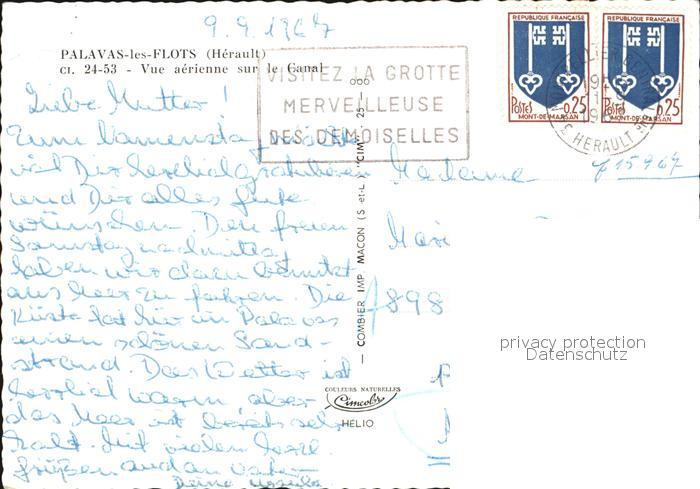 9.9.1967
PALAVAS-les-FLOTS (Hérault)
CI. 24-53 - Vue aérienne sur le Canal
VISITEZ LA GROTTE
MERVEILLEUSE
DES DEMOISELLES
REPUBLIQUE FRANÇAISE
Postes 0,25
MONT-DE-MARSAN
REPUBLIQUE FRANÇAISE
Postes 0,25
MONT-DE-MARSAN
HERAULT
Liebe Mutter!
Zum Namenstag
Dir herzlich gratulieren
und Dir alles Gute
wünschen. Den freien
Samstagnachmittag
haben wir dazu benutzt
ans Meer zu fahren. Die
Küste hat hier in Palavas
einen schönen Sand-
strand. Das Wetter ist
herrlich warm aber
das Meer ist bereits sehr
kalt. Mit vielen herzl.
Grüßen auch an Vater
Deine
Madame
898
COMBIER IMP. MACON (S.-et-L.) "CIM" - 25 -
COULEURS NATURELLES
Cimcolor
HÉLIO
privacy protection
Datenschutz